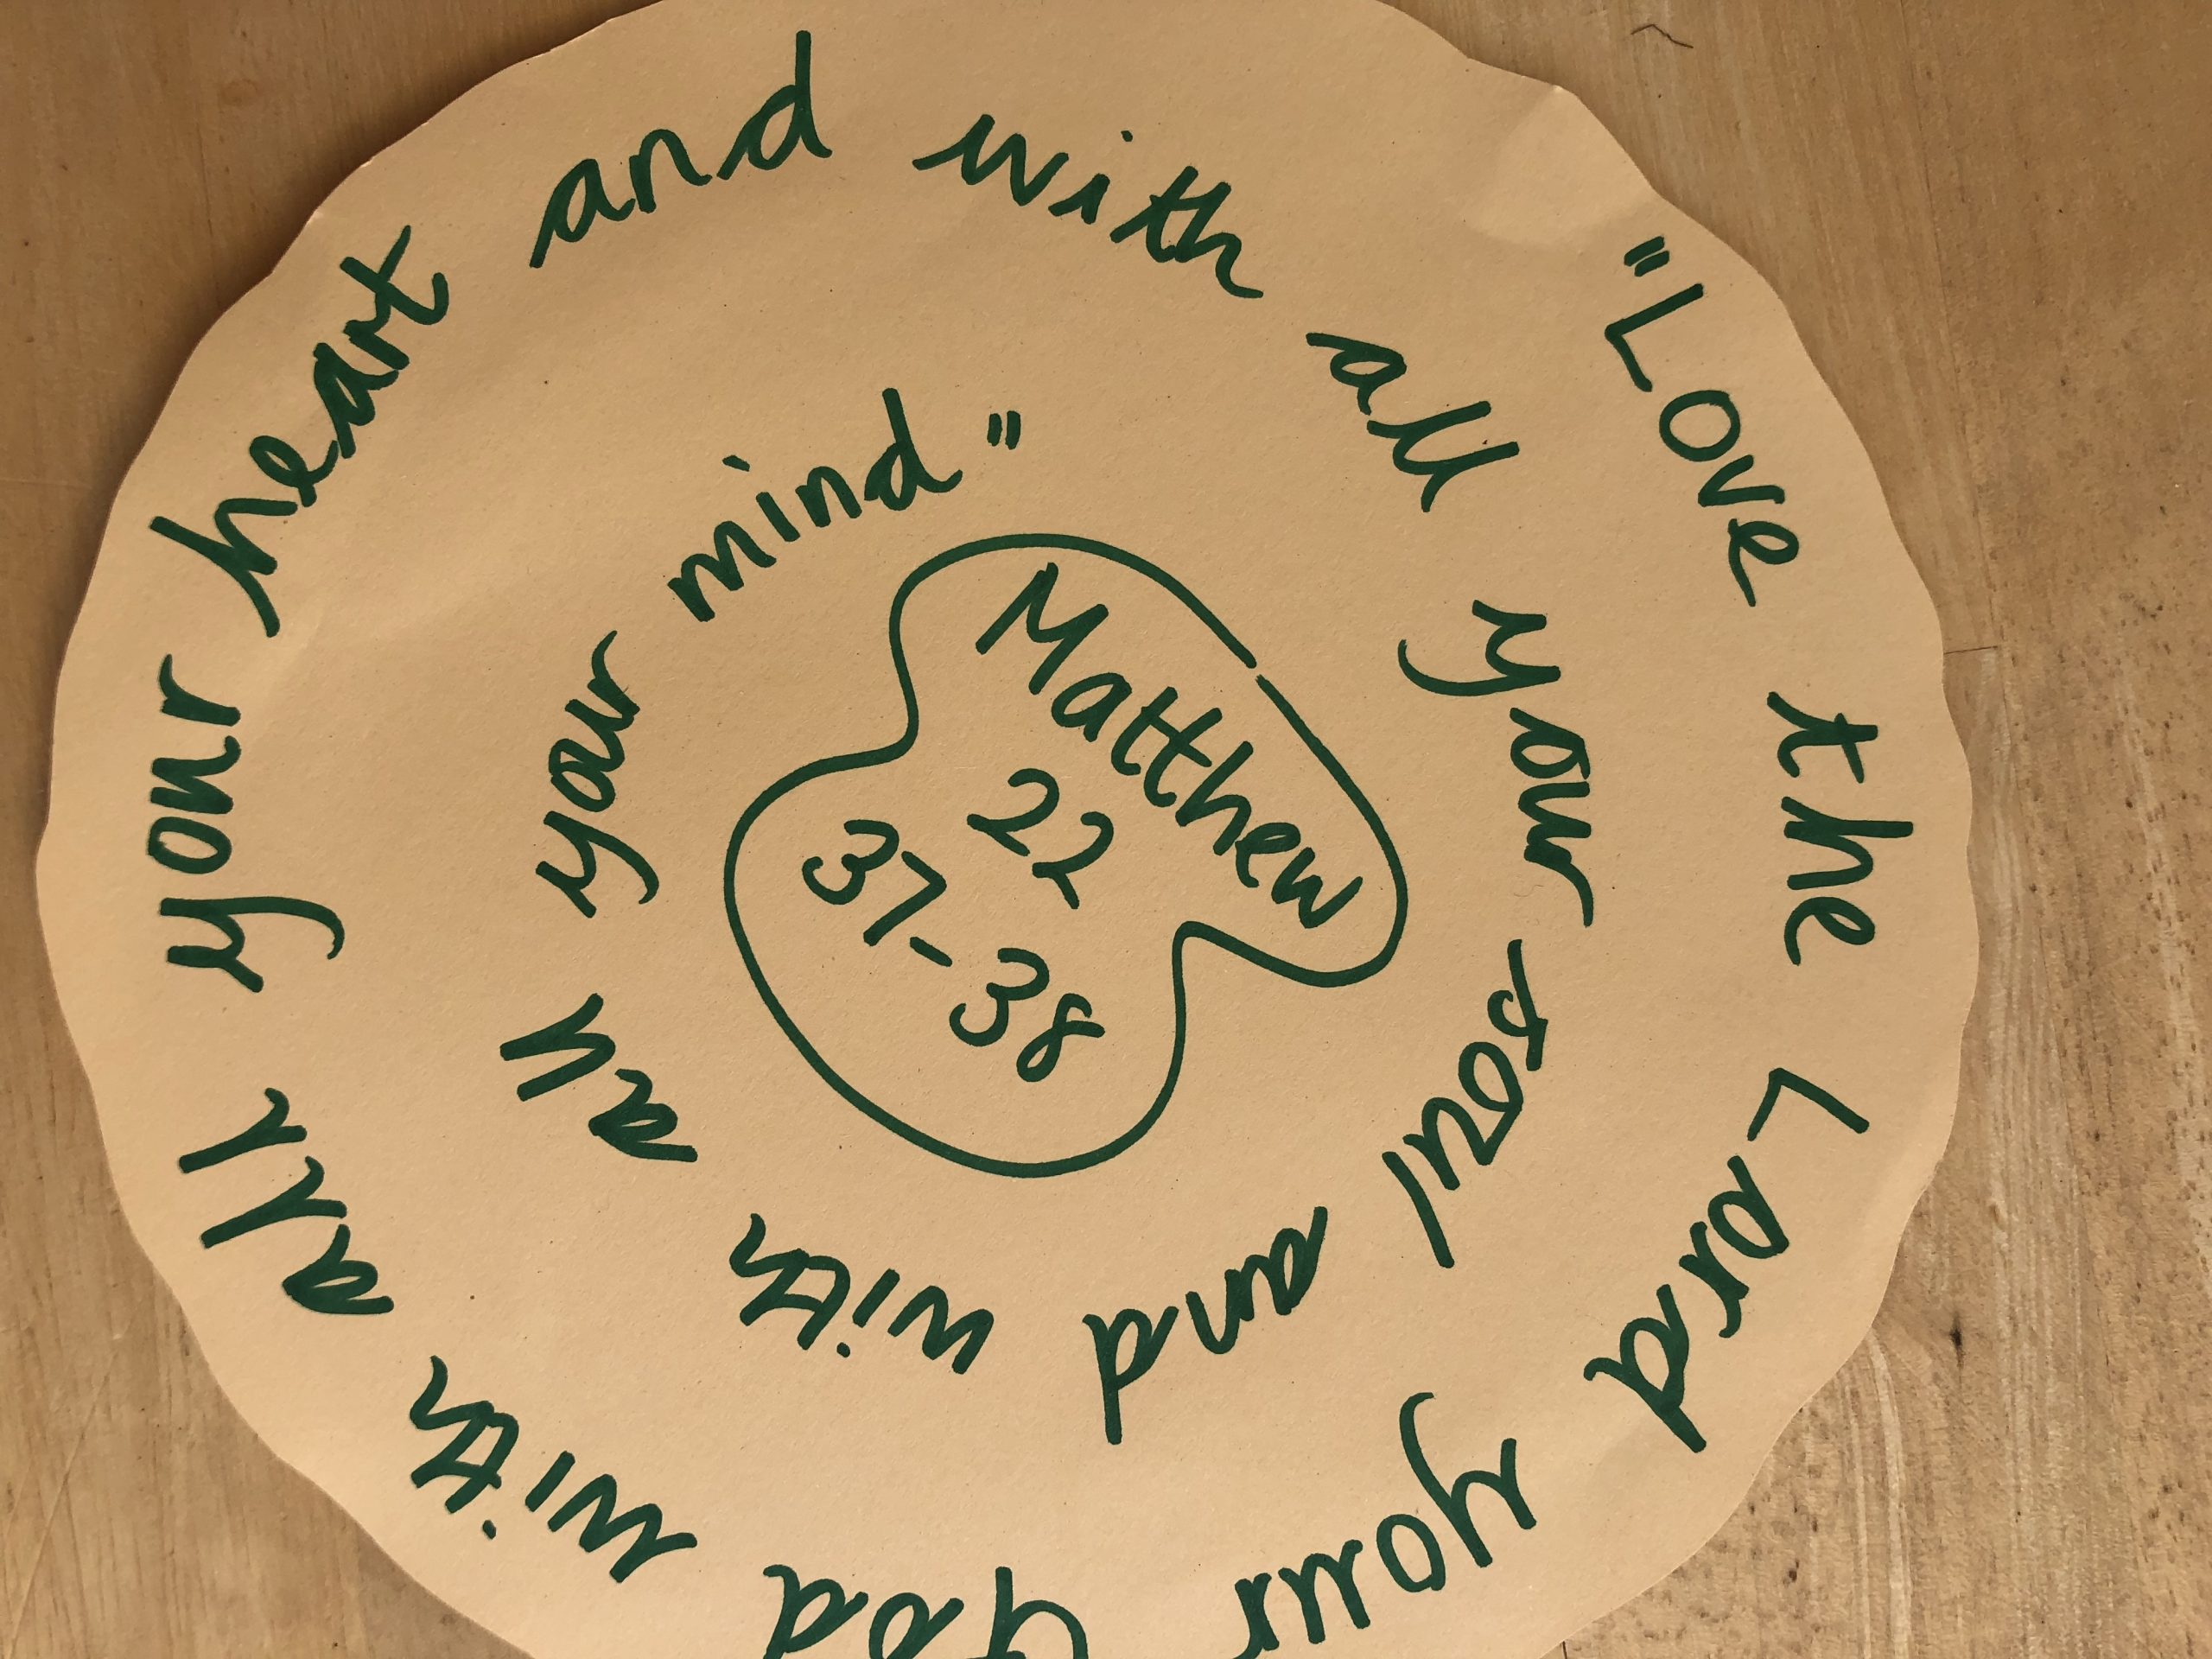 "Love the Lord your God with all your heart and with all your soul and with all your mind"
Matthew
22
37-38